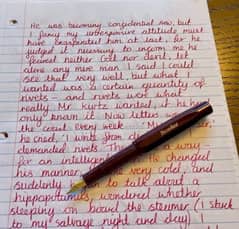 He was becoming confidential now, but
I fancy my unresponsive attitude must
have exasperated him at last, for he
judged it necessary to inform me he
feared neither God nor devil, let
alone any mere man. I said I could
see that very well, but what I
wanted was a certain quantity of
rivets - and rivets were what
really Mr. Kurtz wanted, if he had
only known it. Now letters went to
the coast every week. 'My
he cried, 'I write from
demanded rivets. There was a way -
for an intelligent He changed
his manner; very cold, and
suddenly began to talk about a
hippopotamus; wondered whether
sleeping on board the steamer (I stuck
to my salvage night and day) I